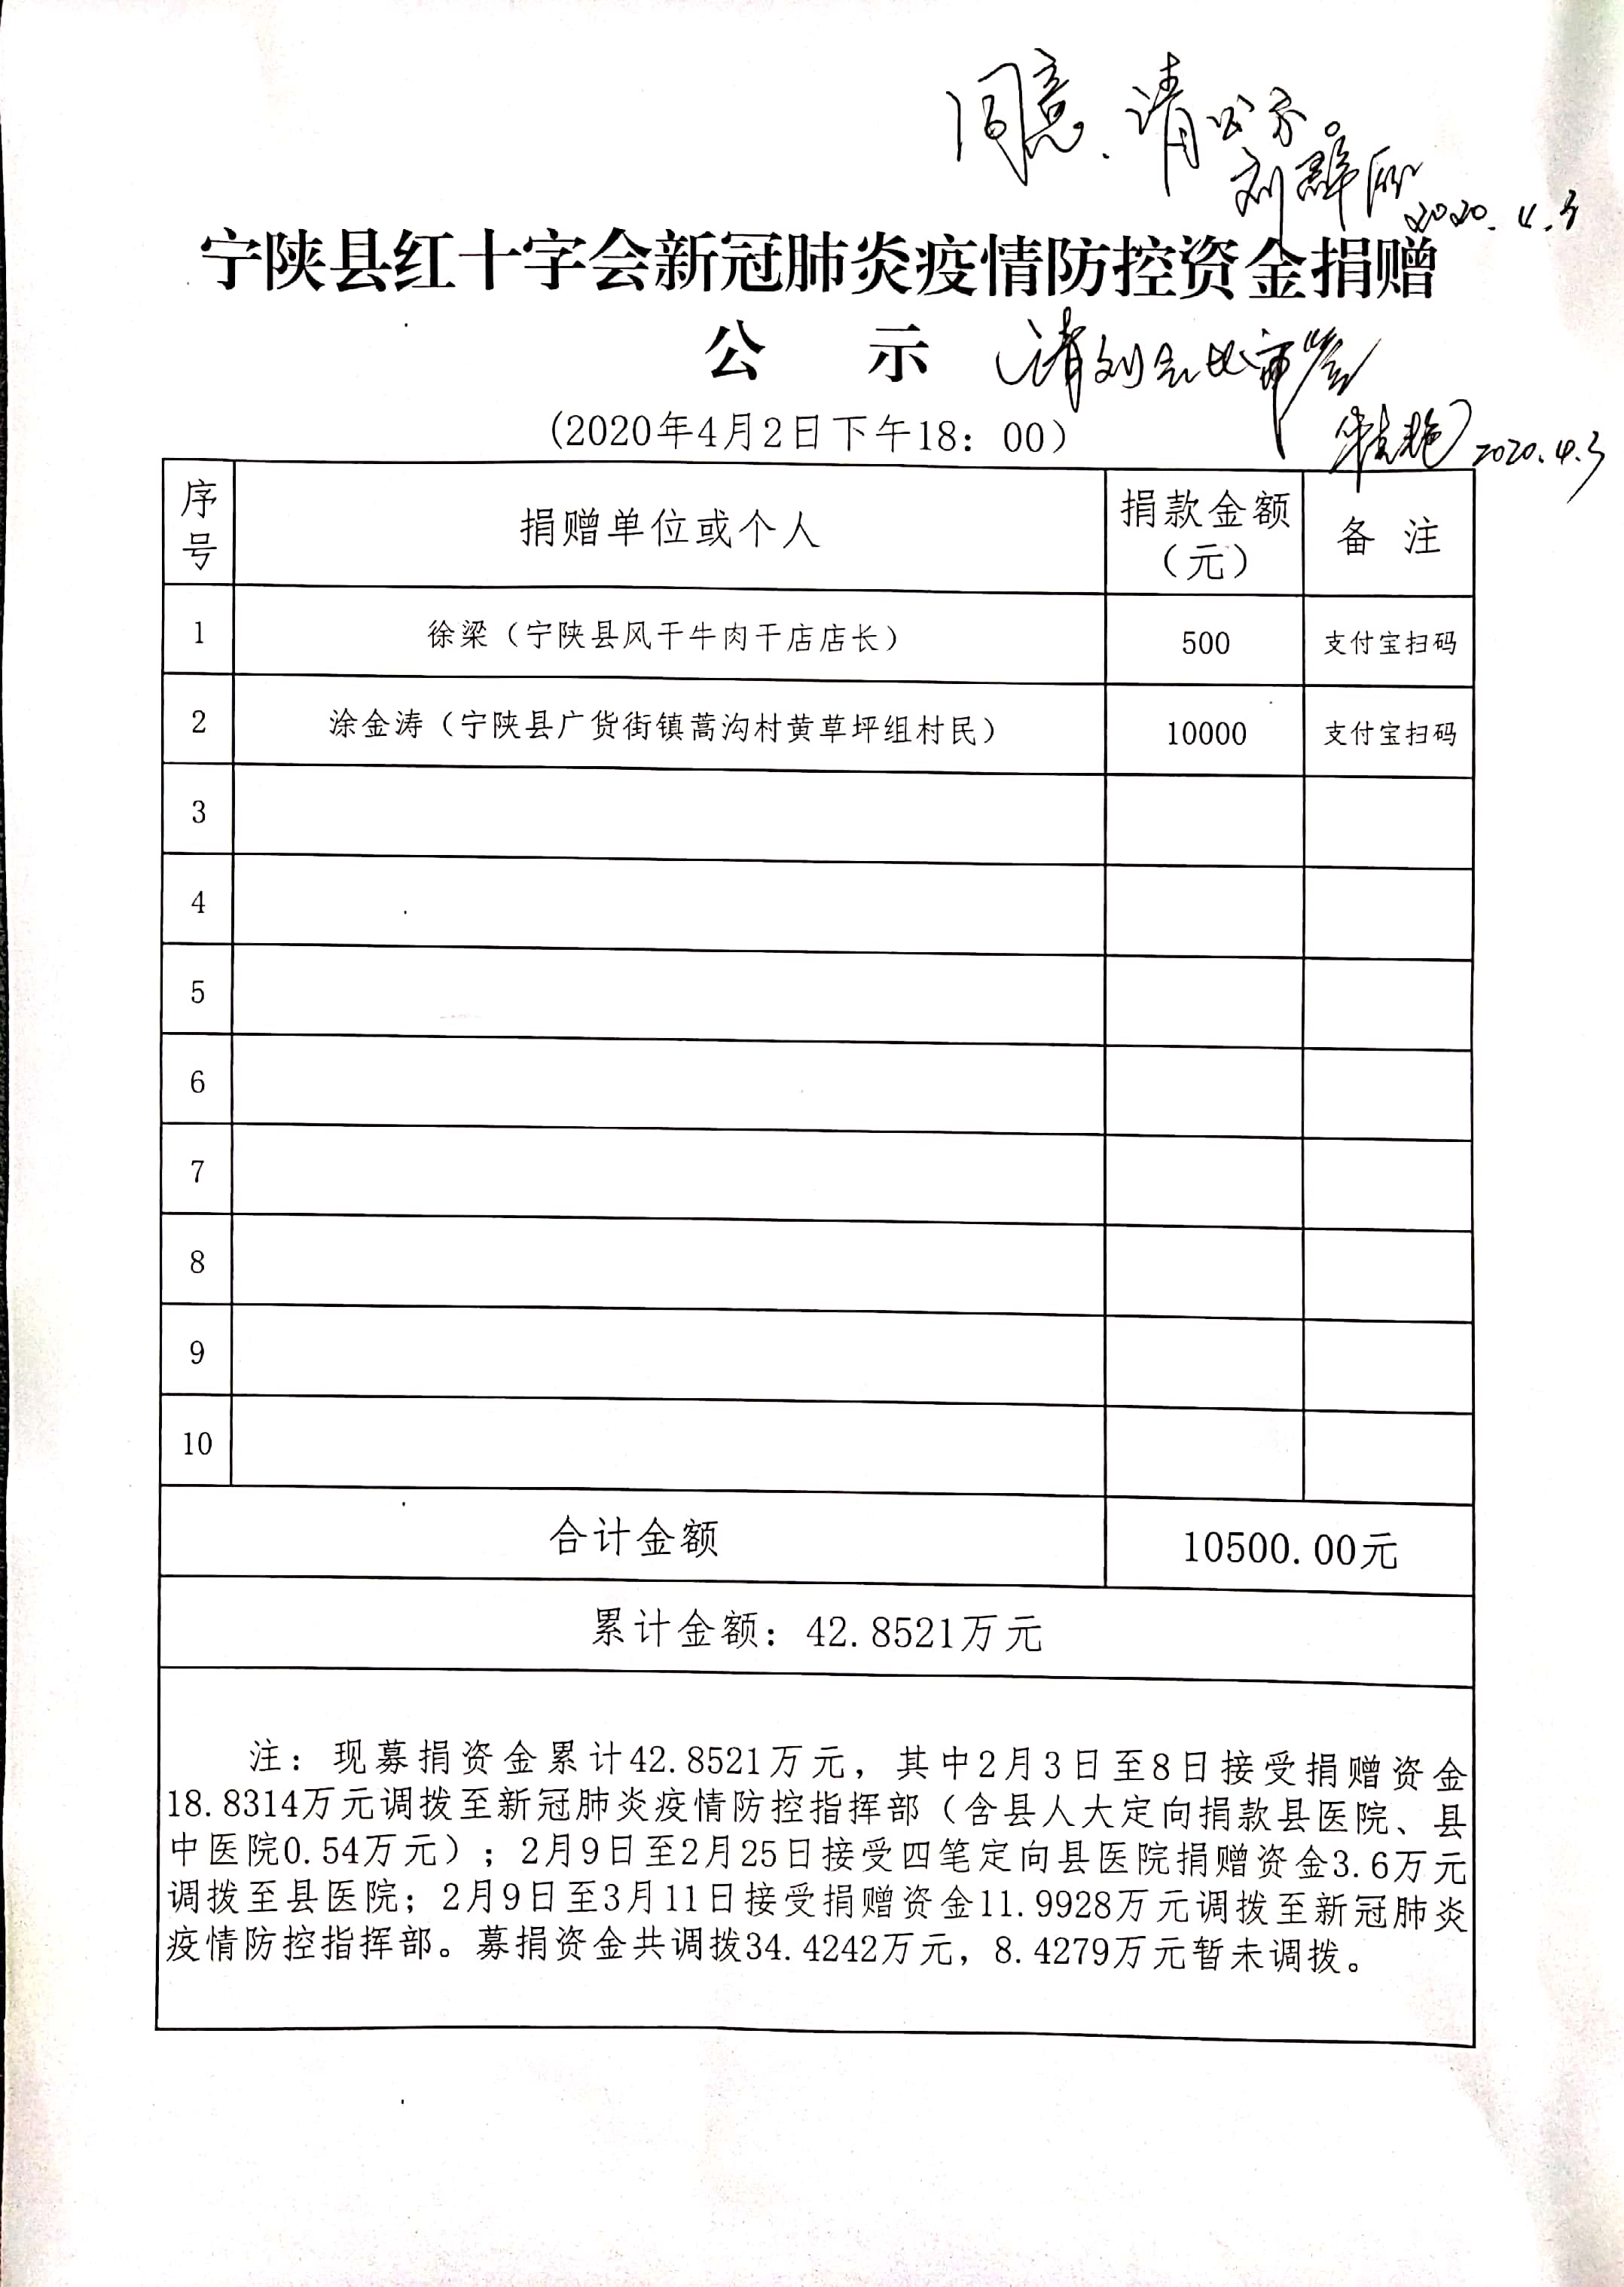 同意.请公示。
刘群
2020.4.3
宁陕县红十字会新冠肺炎疫情防控资金捐赠
公 示
请刘会长审签
2020.4.3
(2020年4月2日下午18：00)
序号 捐赠单位或个人 捐款金额（元） 备 注
1 徐梁（宁陕县风干牛肉干店店长） 500 支付宝扫码
2 涂金涛（宁陕县广货街镇蒿沟村黄草坪组村民） 10000 支付宝扫码
3
4
5
6
7
8
9
10
合计金额 10500.00元
累计金额：42.8521万元
注：现募捐资金累计42.8521万元，其中2月3日至8日接受捐赠资金
18.8314万元调拨至新冠肺炎疫情防控指挥部（含县人大定向捐款县医院、县
中医院0.54万元）；2月9日至2月25日接受四笔定向县医院捐赠资金3.6万元
调拨至县医院；2月9日至3月11日接受捐赠资金11.9928万元调拨至新冠肺炎
疫情防控指挥部。募捐资金共调拨34.4242万元，8.4279万元暂未调拨。